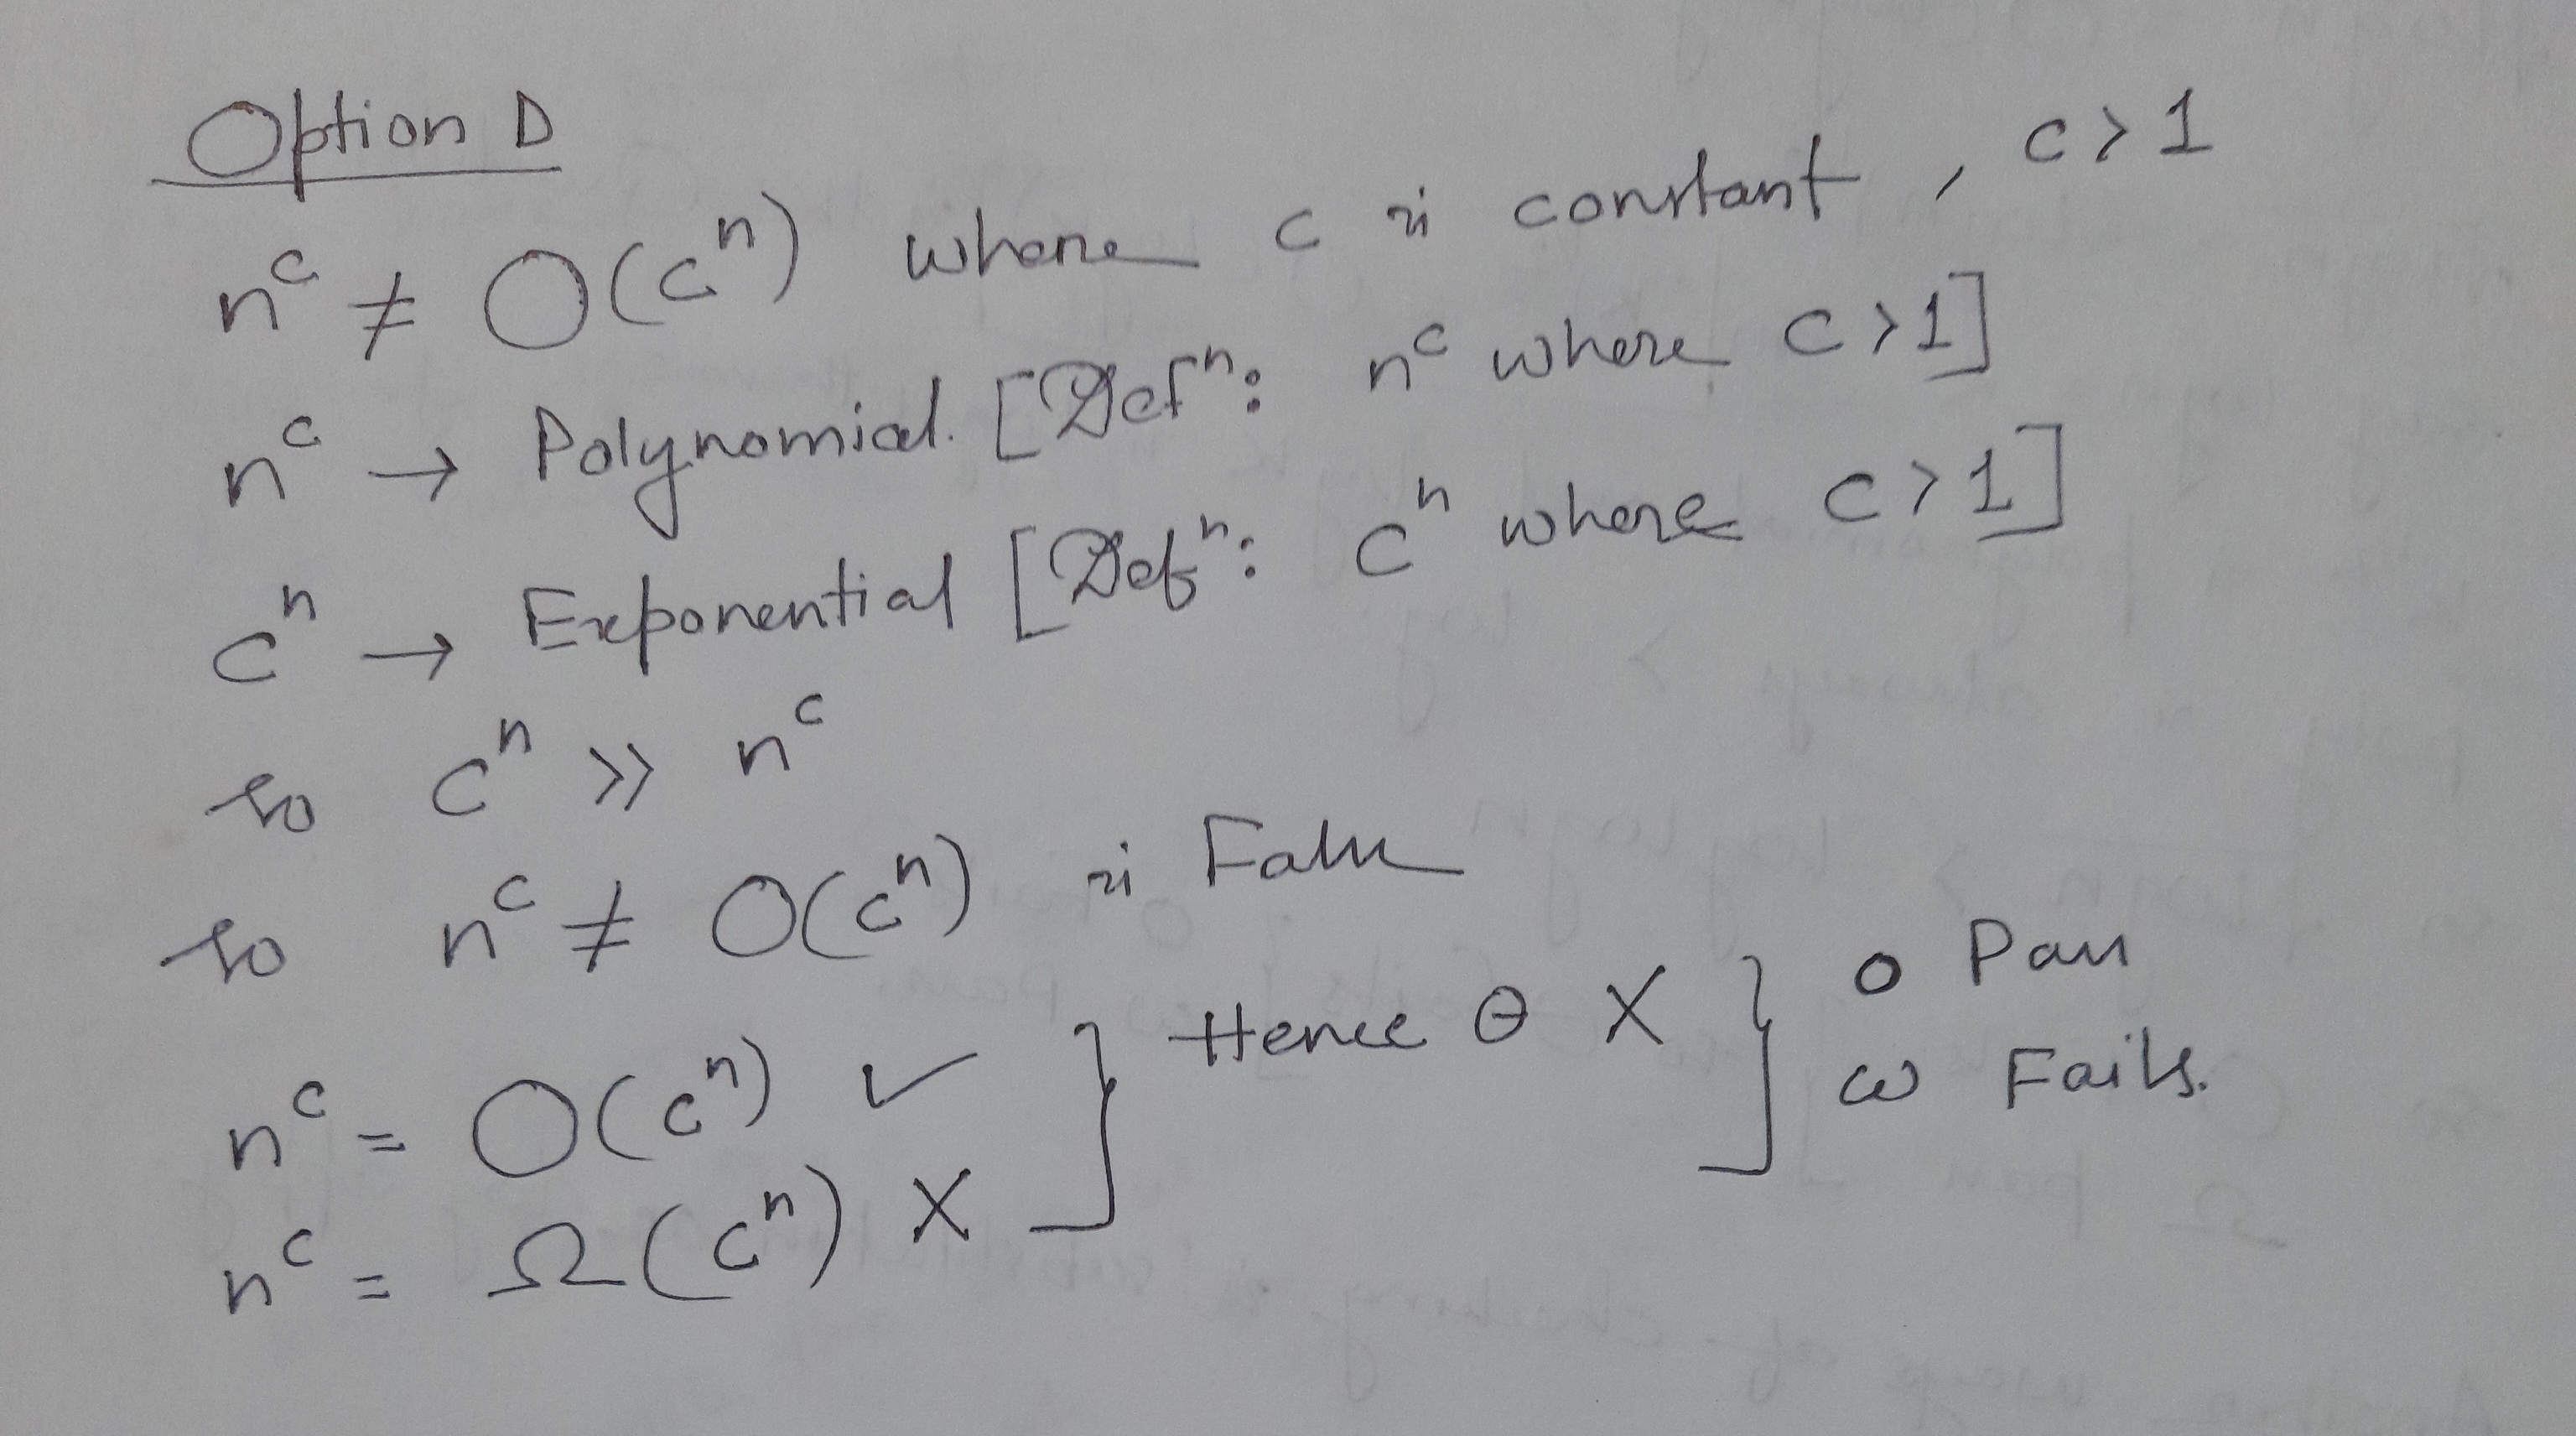 Option D
n^c ≠ O(c^n) where c is constant, c > 1
n^c → Polynomial. [Def^n: n^c where c > 1]
c^n → Exponential [Def^n: c^n where c > 1]
so c^n >> n^c
so n^c ≠ O(c^n) is False
n^c = O(c^n) ✓ ] Hence θ X ] o Pass
n^c = Ω(c^n) X ω Fails.